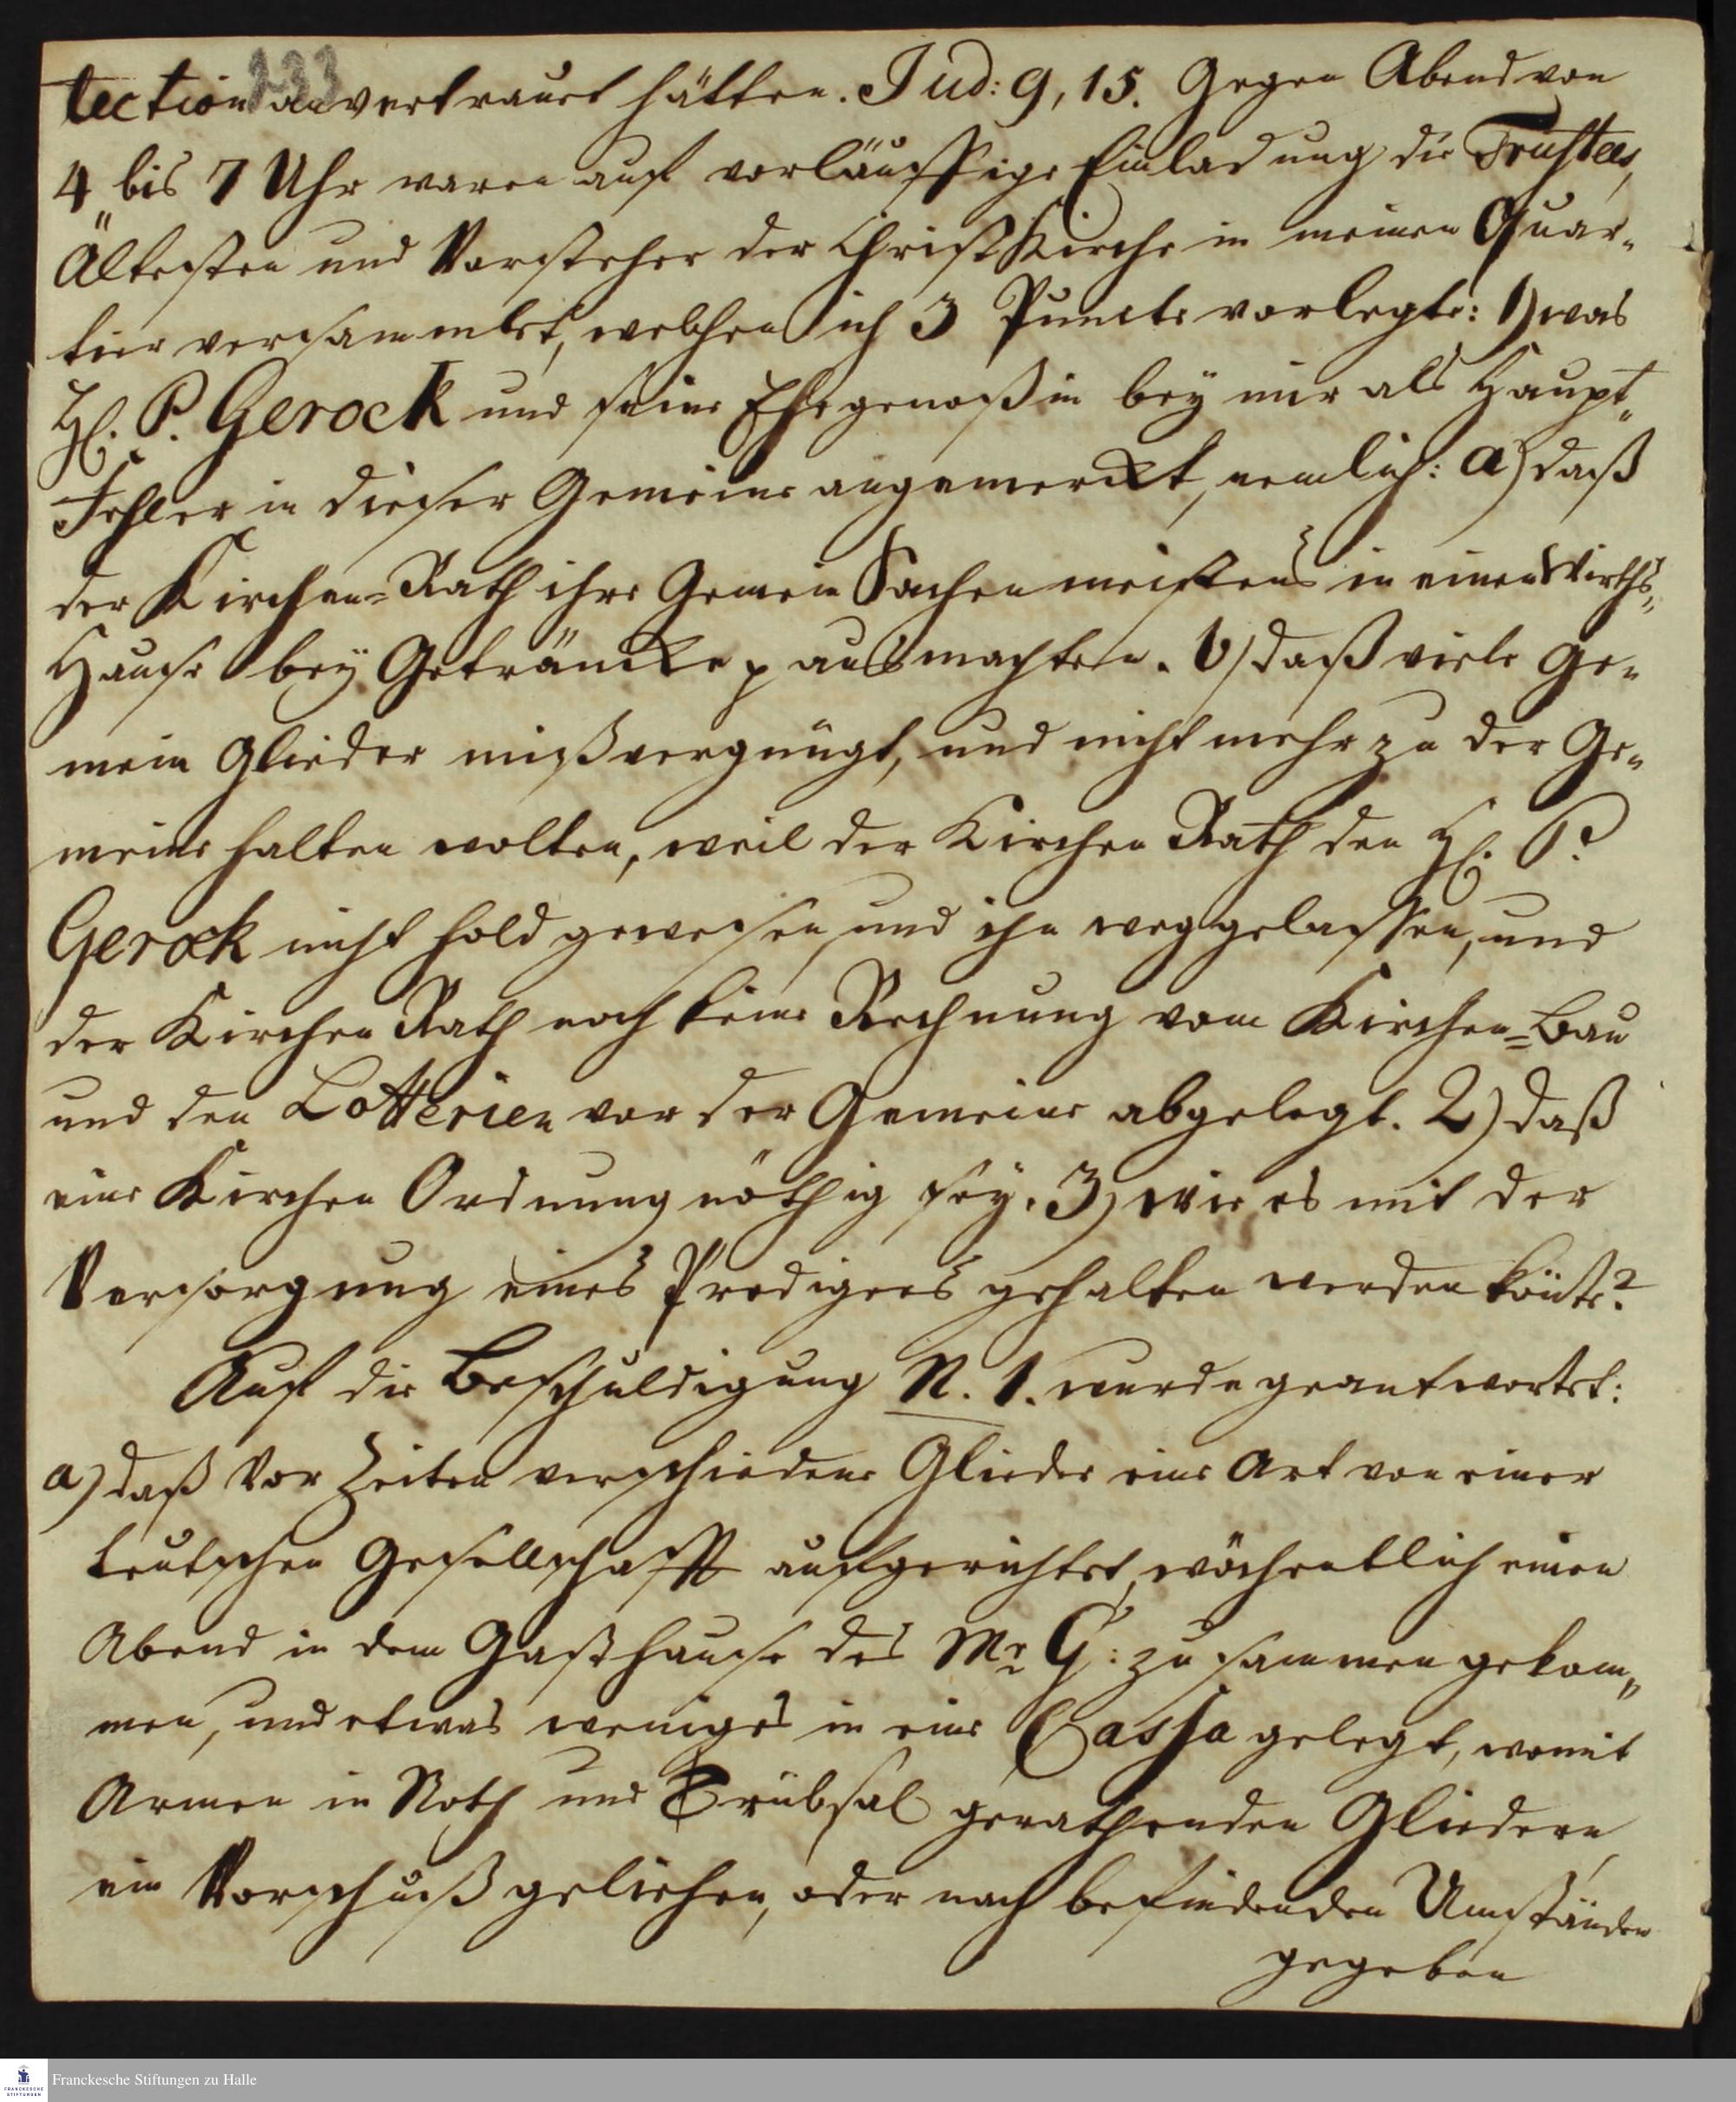 233
tection anvertrauet hätten. Jud: 9, 15. Gegen Abend von
4 bis 7 Uhr waren auf vorläuffige Einladung die Trustees,
Ältesten und Vorsteher der Christ Kirche in meinen Quar„
tier versammlet, welchen ich 3 Puncte vorlegte: 1) was
H. P. Gerock und seine Ehegenoßin bey mir als Haupt„
Fehler in dieser Gemeine angemerckt, nemlich: a) daß
der Kirchen=Rath ihre Gemein Sachen meistens in einen Wirths„
Hause bey Geträncke p ausmachten. b) daß viele Ge„
mein Glieder mißvergnügt, und nicht mehr zu der Ge„
meine halten wolten, weil der Kirchen Rath den H. P.
Gerock nicht hold gewesen, und ihn weggelassen, und
der Kirchen Rath noch keine Rechnung vom Kirchen=Bau
und den Lotterien vor der Gemeine abgelegt. 2) daß
eine Kirchen Ordnung nöthig sey. 3) wie es mit der
Versorgung eines Predigers gehalten werden könte?
Auf die Beschuldigung N. 1. wurde geantwortet:
a) daß vor Zeiten verschiedene Glieder eine Art von einer
teutschen Gesellschafft aufgerichtet, wöchentlich einen
Abend in dem Gasthause des Mr G: zusammen gekom„
men, und etwas weniges in eine Cassa gelegt, womit
Armen in Noth und Trübsal gerathenden Gliedern,
ein Vorschuß geliehen, oder nach befindenden Umständen
gegeben
Franckesche Stiftungen zu Halle